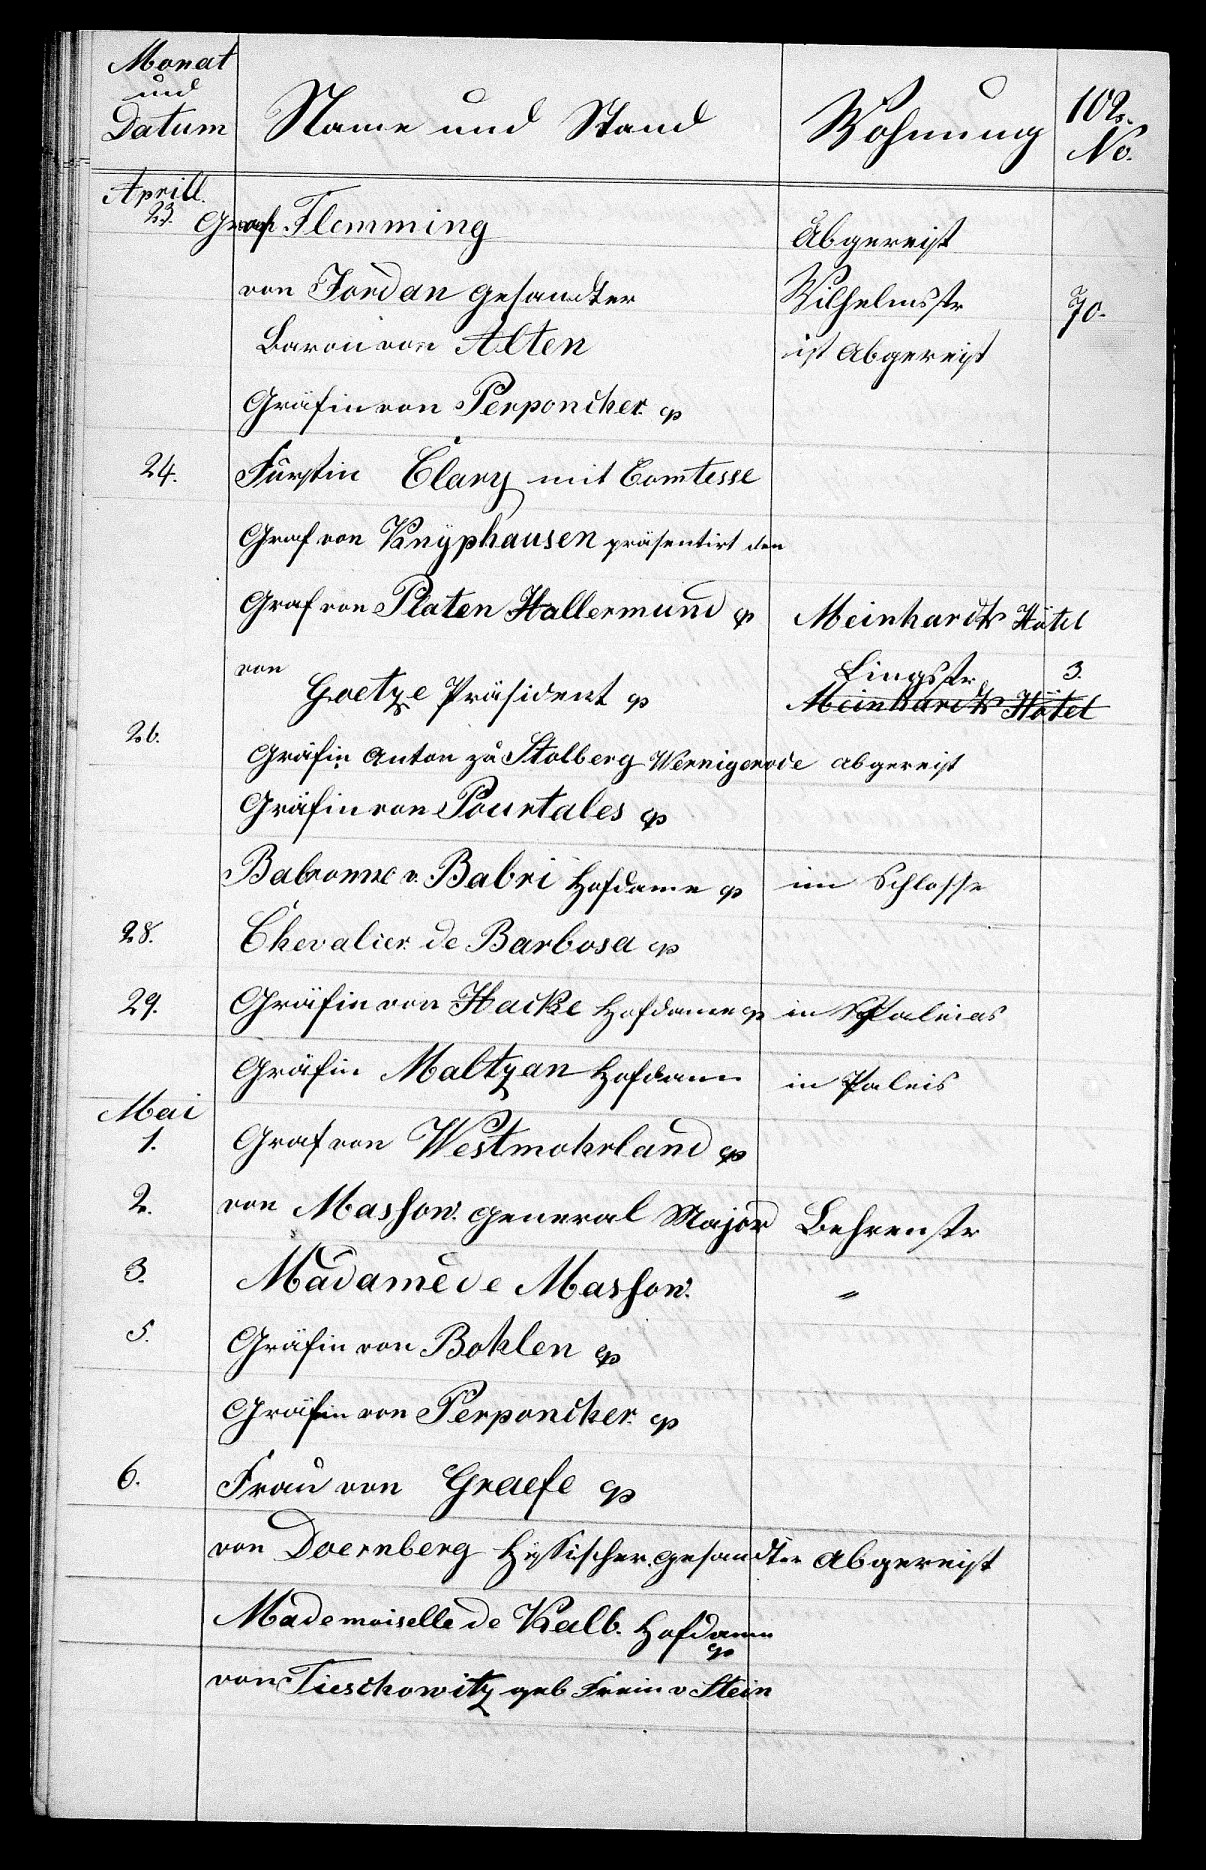 Monat und Datum | Name und Stand | Wohnung | 102. No.
Aprill.
23. Graf Flemming | Abgereist
von Jordan Gesandter | Wilhelmsstr | 70.
Baron von Alten | ist Abgereist
Gräfin von Perponcher
24. Fürstin Clary mit Comtesse
Graf von Knÿphausen präsentirt den
Graf von Platen Hallermund | Meinhardts Hôtel
von Goetze Präsident | Lingsstr 3.
Meinhardts Hôtel
26. Gräfin Anton zu Stolberg Wernigerode abgereist
Gräfin von Pourtales
Babronne v. Babri Hofdame | im Schlosse
28. Chevalier de Barbosa
29. Gräfin von Hacke Hofdame | in Palais
Gräfin Maltzan Hofdame | in Palais
Mai
1. Graf von Westmohrland
2. von Massow. General Major | Behrenstr
3. Madame de Massow. | "
5. Gräfin von Bohlen
Gräfin von Perponcher
6. Frau von Graefe
von Doernberg Hessischer Gesandter Abgereist
Mademoiselle de Kalb. Hofdame
von Tieschowitz geb Freiin v Stein